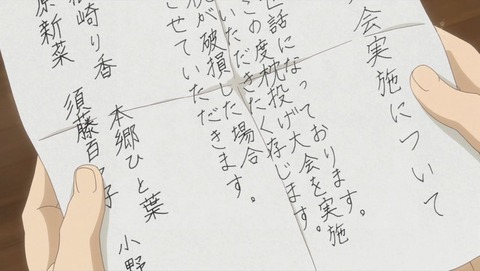 大会実施について
世話になっております。
この度枕投げ大会を実施
いただきたく存じます。
が破損した場合
させていただきます。
小野
本郷ひと葉
須藤百々子
原新菜
崎り香